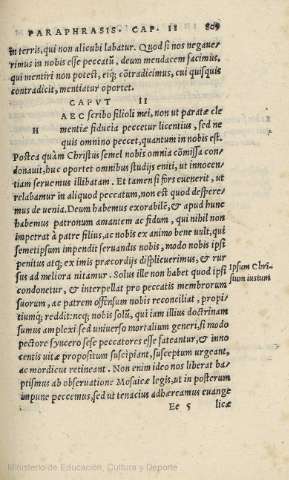 PARAPHRASIS. CAP. II 809
in terris, qui non alicubi labatur. Quod si nos negaue-
rimus in nobis esse peccatũ, deum mendacem facimus,
qui mentiri non potest, eiq; cõtradicimus, cui quisquis
contradicit, mentiatur oportet.
CAPVT II
HAEC scribo filioli mei, non ut paratæ cle
mentiæ fiducia peccetur licentius, sed ne
quis omnino peccet, quantum in nobis est.
Postea quàm Christus semel nobis omnia cõmissa con-
donauit, huc oportet omnibus studijs eniti, ut innocen-
tiam seruemus illibatam. Et tamen si firs euenerit, ut
relabamur in aliquod peccatum, non est quod despere-
mus de uenia. Deum habemus exorabilẽ, & apud hunc
habemus patronum amantem ac fidum, qui nihil non
impetrat à patre filius, ac nobis ex animo bene uult, qui
semetipsum impendit seruandis nobis, modo nobis ipsi
penitus atq; ex imis præcordijs displicuerimus, & rur
sus ad meliora nitamur. Solus ille non habet quod ipsi
condonetur, & interpellat pro peccatis membrorum
suorum, ac patrem offensum nobis reconciliat, propi-
tiumq; reddit: neq; nobis solũ, qui iam illius doctrinam
sumus amplexi sed uniuerso mortalium generi, si modo
pectore syncero sese peccatores esse fateantur, & inno
centis uitæ propositum suscipiant, susceptum urgeant,
ac mordicus retineant. Non enim ideo nos liberat ba-
ptismus ab obseruatione Mosaicæ legis, ut in posterum
impune peccemus, sed ut tenacius adhæreamus euange
Ee 5 licæ
Ipsum Chri-
stum iustum
Ministerio de Educación, Cultura y Deporte